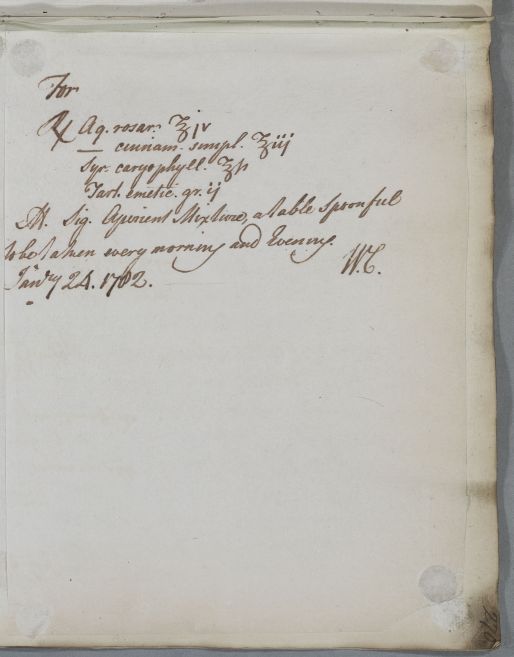 For
℞ Aq. rosar. ℥iv
— cinnam. simpl. ℥iij
Syr. caryophyll. ℥ſs
Tart. emetic. gr. ij
M. Sig. Aperient Mixture, a table spoonful
to be taken every morning and Evening.
W.C.
Janry 24. 1782.